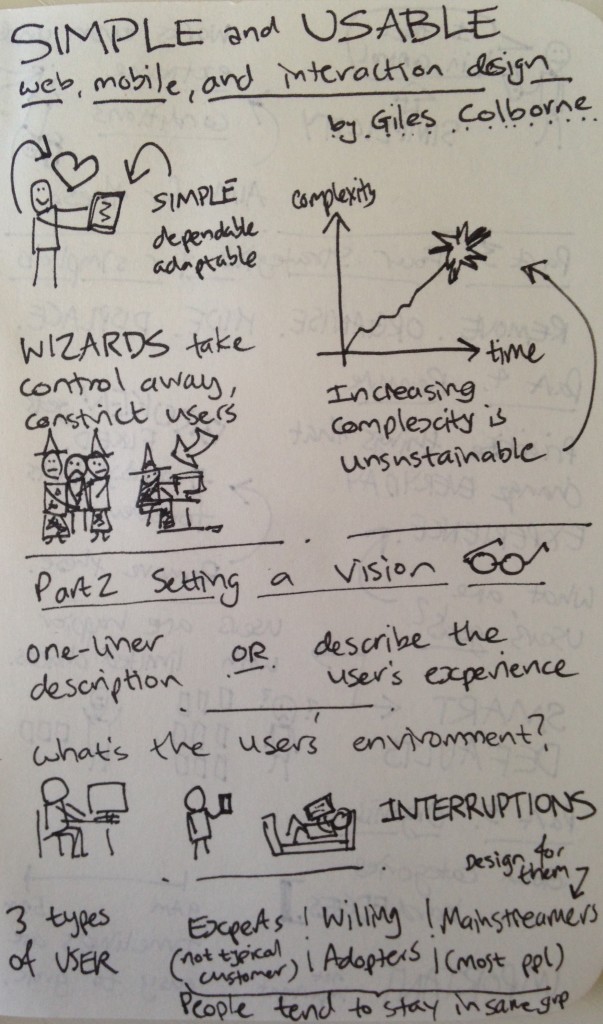 SIMPLE and USABLE
web, mobile, and interaction design
by Giles Colborne
SIMPLE
dependable
adaptable
complexity
time
Increasing
complexity is
unsustainable
WIZARDS take
control away,
constrict users
Part 2 Setting a Vision
one-liner
description
OR
describe the
user's experience
what's the users' environment?
INTERRUPTIONS
Design for
them
3 types
of USER
Experts | Willing | Mainstreamers
(not typical
customer) | Adopters | (most ppl)
People tend to stay in same grp